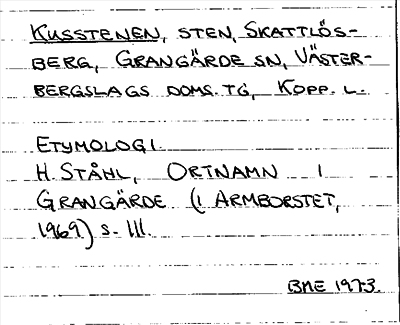 KUSSTENEN, STEN, SKATTLÖS-
BERG, GRANGÄRDE SN, VÄSTER-
BERGSLAGS DOMS. TG, KOPP. L.
ETYMOLOGI.
H. STÅHL, ORTNAMN I
GRANGÄRDE (I ARMBORSTET,
1969) S. 111.
BME 1973.